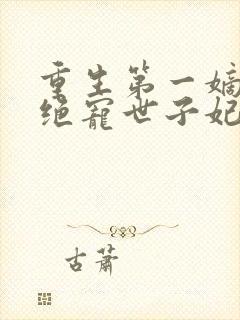 重生第一嫡
绝宠世子妃
古萧